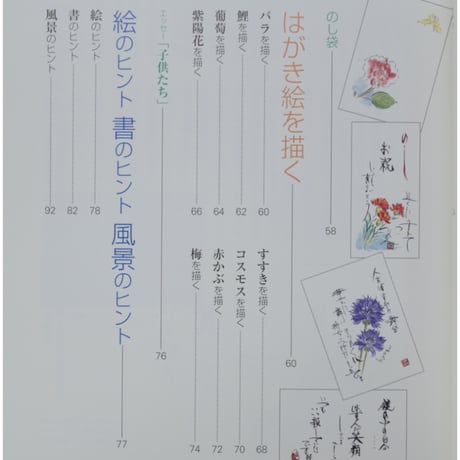 のし袋 58
はがき絵を描く 60
バラを描く 60
鯉を描く 62
葡萄を描く 64
紫陽花を描く 66
すすきを描く 68
コスモスを描く 70
赤かぶを描く 72
梅を描く 74
エッセー「子供たち」 76
絵のヒント 書のヒント 風景のヒント 77
絵のヒント 78
書のヒント 82
風景のヒント 92
のし
お祝